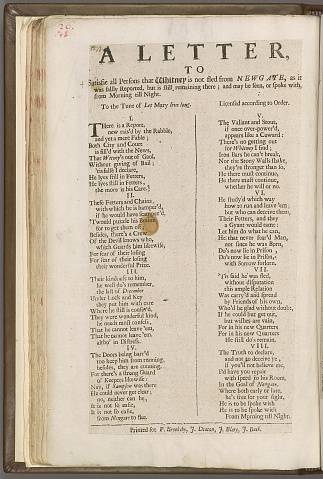 A LETTER,
TO
Satisfie all Persons that Whitney is not fled from NEWGATE, as it
was falsly Reported, but is still remaining there; and may be seen, or spoke with,
from Morning till Night.
To the Tune of Let Mary live long.
Licensed according to Order.
I.
There is a Report,
now rais'd by the Rabble,
and yet a mere Fable;
Both City and Court
is fill'd with the News,
That Witney's out of Gaol,
Without giving of Bail;
'tis false I declare,
He lyes still in Fetters,
He lyes still in Fetters,
the more is his Care.
II.
These Fetters and Chains,
with which he is hamper'd,
if he would have scamper'd,
'Twould puzzle his Brains
for to get them off;
Besides, there's a Crew
Of the Devil knows who,
which Guards him likewise,
For fear of their losing
For fear of their losing
their wonderful Prize.
III.
Their kindness to him,
he well do's remember,
the last of December
Under Lock and Key
they put him with care
Where he still is confin'd,
They were wonderful kind,
he needs must confess,
That he cannot leave 'em,
That he cannot leave 'em,
altho' in Distress.
IV.
The Doors being barr'd
too keep him from running,
besides, they are cunning,
For there's a strong Guard
of Keepers likewise:
Nay, if Sampson was there
He could never get clear;
no, neither can he,
It is not so easie,
It is not so easie,
from Newgate to flee.
V.
The Valiant and Stout,
if once over-power'd,
appears like a Coward:
There's no getting out
for Whitney I find;
Iron Bars he can't break,
Nor the Stony Walls shake,
they're stronger than so,
He there must continue,
He there must continue,
whether he will or no.
VI.
He study'd which way
how to run and leave 'em;
but who can deceive them,
Their Fetters, and they
a Grant would name:
Let him do what he can,
He that never fear'd Man,
not since he was Born,
Do's now lie in Prison,
Do's now lie in Prison,
with Sorrow forlorn.
VII.
'Tis said he was fled,
without disputation
this ample Relation
Was carry'd and spread
by Friends of his own,
Who'd be glad without doubt,
If he could but get out,
but wishes are vain,
For in his new Quarters
For in his new Quarters
He still do's remain.
VIII.
The Truth to declare,
and not go deceive ye,
if you'll not believe me,
I'd have you repair
with speed to his Room,
In the Goal of Newgate,
Where both early or late,
he's free for your sight,
He is to be spoke with
He is to be spoke with
From Morning till Night.
Printed for P. Brooksby, J. Deacon, J. Blare, J. Back.